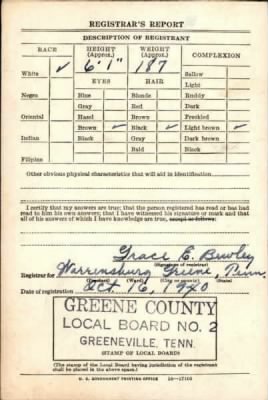 REGISTRAR'S REPORT
DESCRIPTION OF REGISTRANT
RACE HEIGHT (Approx.) WEIGHT (Approx.) COMPLEXION
White ✓ 6'1" 187 Sallow
Light
EYES HAIR
Negro Blue Blonde Ruddy
Gray Red Dark
Oriental Hazel Brown Freckled
Brown ✓ Black ✓ Light brown ✓
Indian Black Gray Dark brown
Bald Black
Filipino
Other obvious physical characteristics that will aid in identification
I certify that my answers are true; that the person registered has read or has had
read to him his own answers; that I have witnessed his signature or mark and that
all of his answers of which I have knowledge are true, except as follows:
Grace E. Bewley
(Signature of registrar)
Registrar for Warrensburg Greene, Tenn.
(Precinct) (Ward) (City or county) (State)
Date of registration Oct 16, 1940
GREENE COUNTY
LOCAL BOARD NO. 2
GREENEVILLE, TENN.
(STAMP OF LOCAL BOARD)
(The stamp of the Local Board having jurisdiction of the registrant
shall be placed in the above space.)
U. S. GOVERNMENT PRINTING OFFICE 16—17105